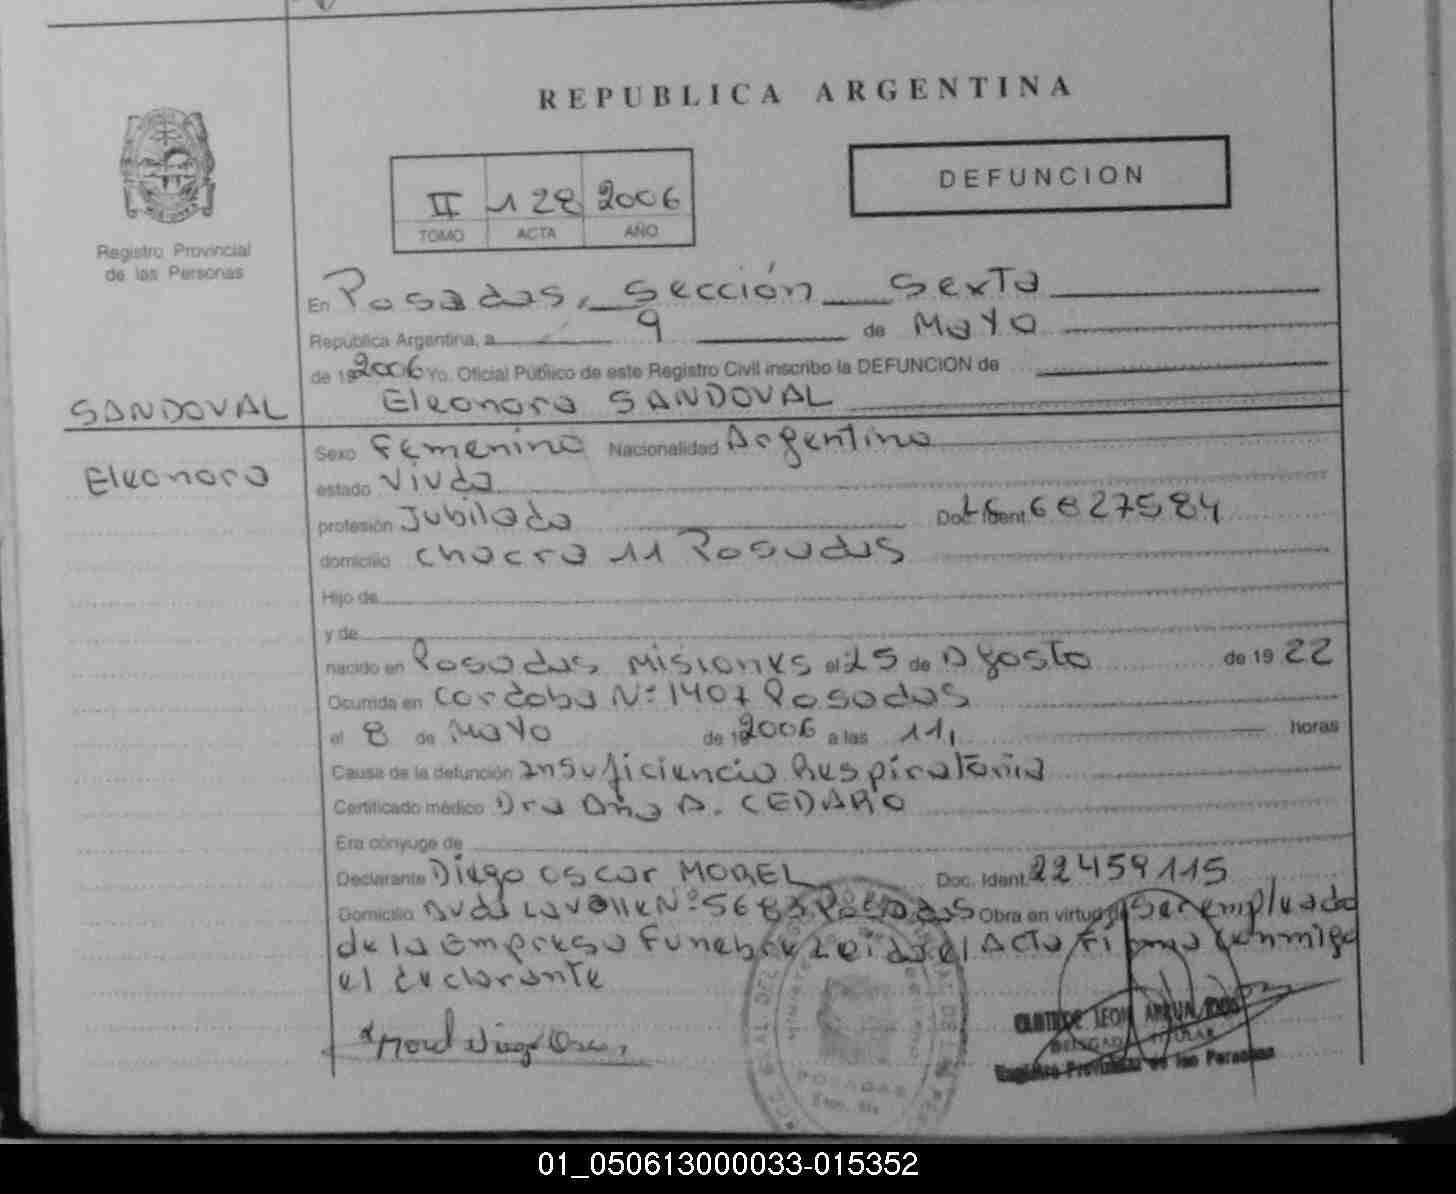 REPUBLICA ARGENTINA
DEFUNCION
II 128 2006
TOMO ACTA AÑO
Registro Provincial
de las Personas
En Posadas, Sección Sexta
República Argentina, a 9 de Mayo
de 19 2006 Yo. Oficial Público de este Registro Civil inscribo la DEFUNCION de
SANDOVAL Eleonora SANDOVAL
Eleonora
Sexo Femenino Nacionalidad Argentina
estado Viuda
profesión Jubilada Doc. Ident. 6827584
domicilio Chacra 11 Posadas
Hijo de
y de
nacido en Posadas Misiones el 25 de Agosto de 19 22
Ocurrida en Cordoba Nº 1407 Posadas
el 8 de Mayo de 19 2006 a las 11, horas
Causa de la defunción Insuficiencia Respiratoria
Certificado médico Dra Ana A. CEDARO
Era cónyuge de
Declarante Diego Oscar MOREL Doc. Ident. 22459115
Domicilio Avda Lavalle Nº 5683 Posadas Obra en virtud de Ser empleado
de la Empresa Funebre Leida el Acta Firma Conmigo
el declarante
Morel Diego Oscar
POSADAS
TITULAR
Registro Provincial de las Personas
01_050613000033-015352